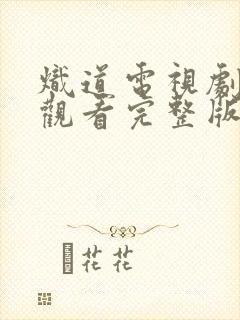 熾道電視劇
觀看完整版
花花